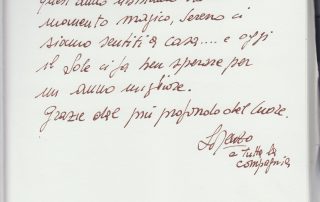 momento magico, sereno ci
siamo sentiti a casa.... e oggi
il Sole ci fa ben sperare per
un anno migliore.
Grazie dal più profondo del Cuore.
e tutta la
compagnia